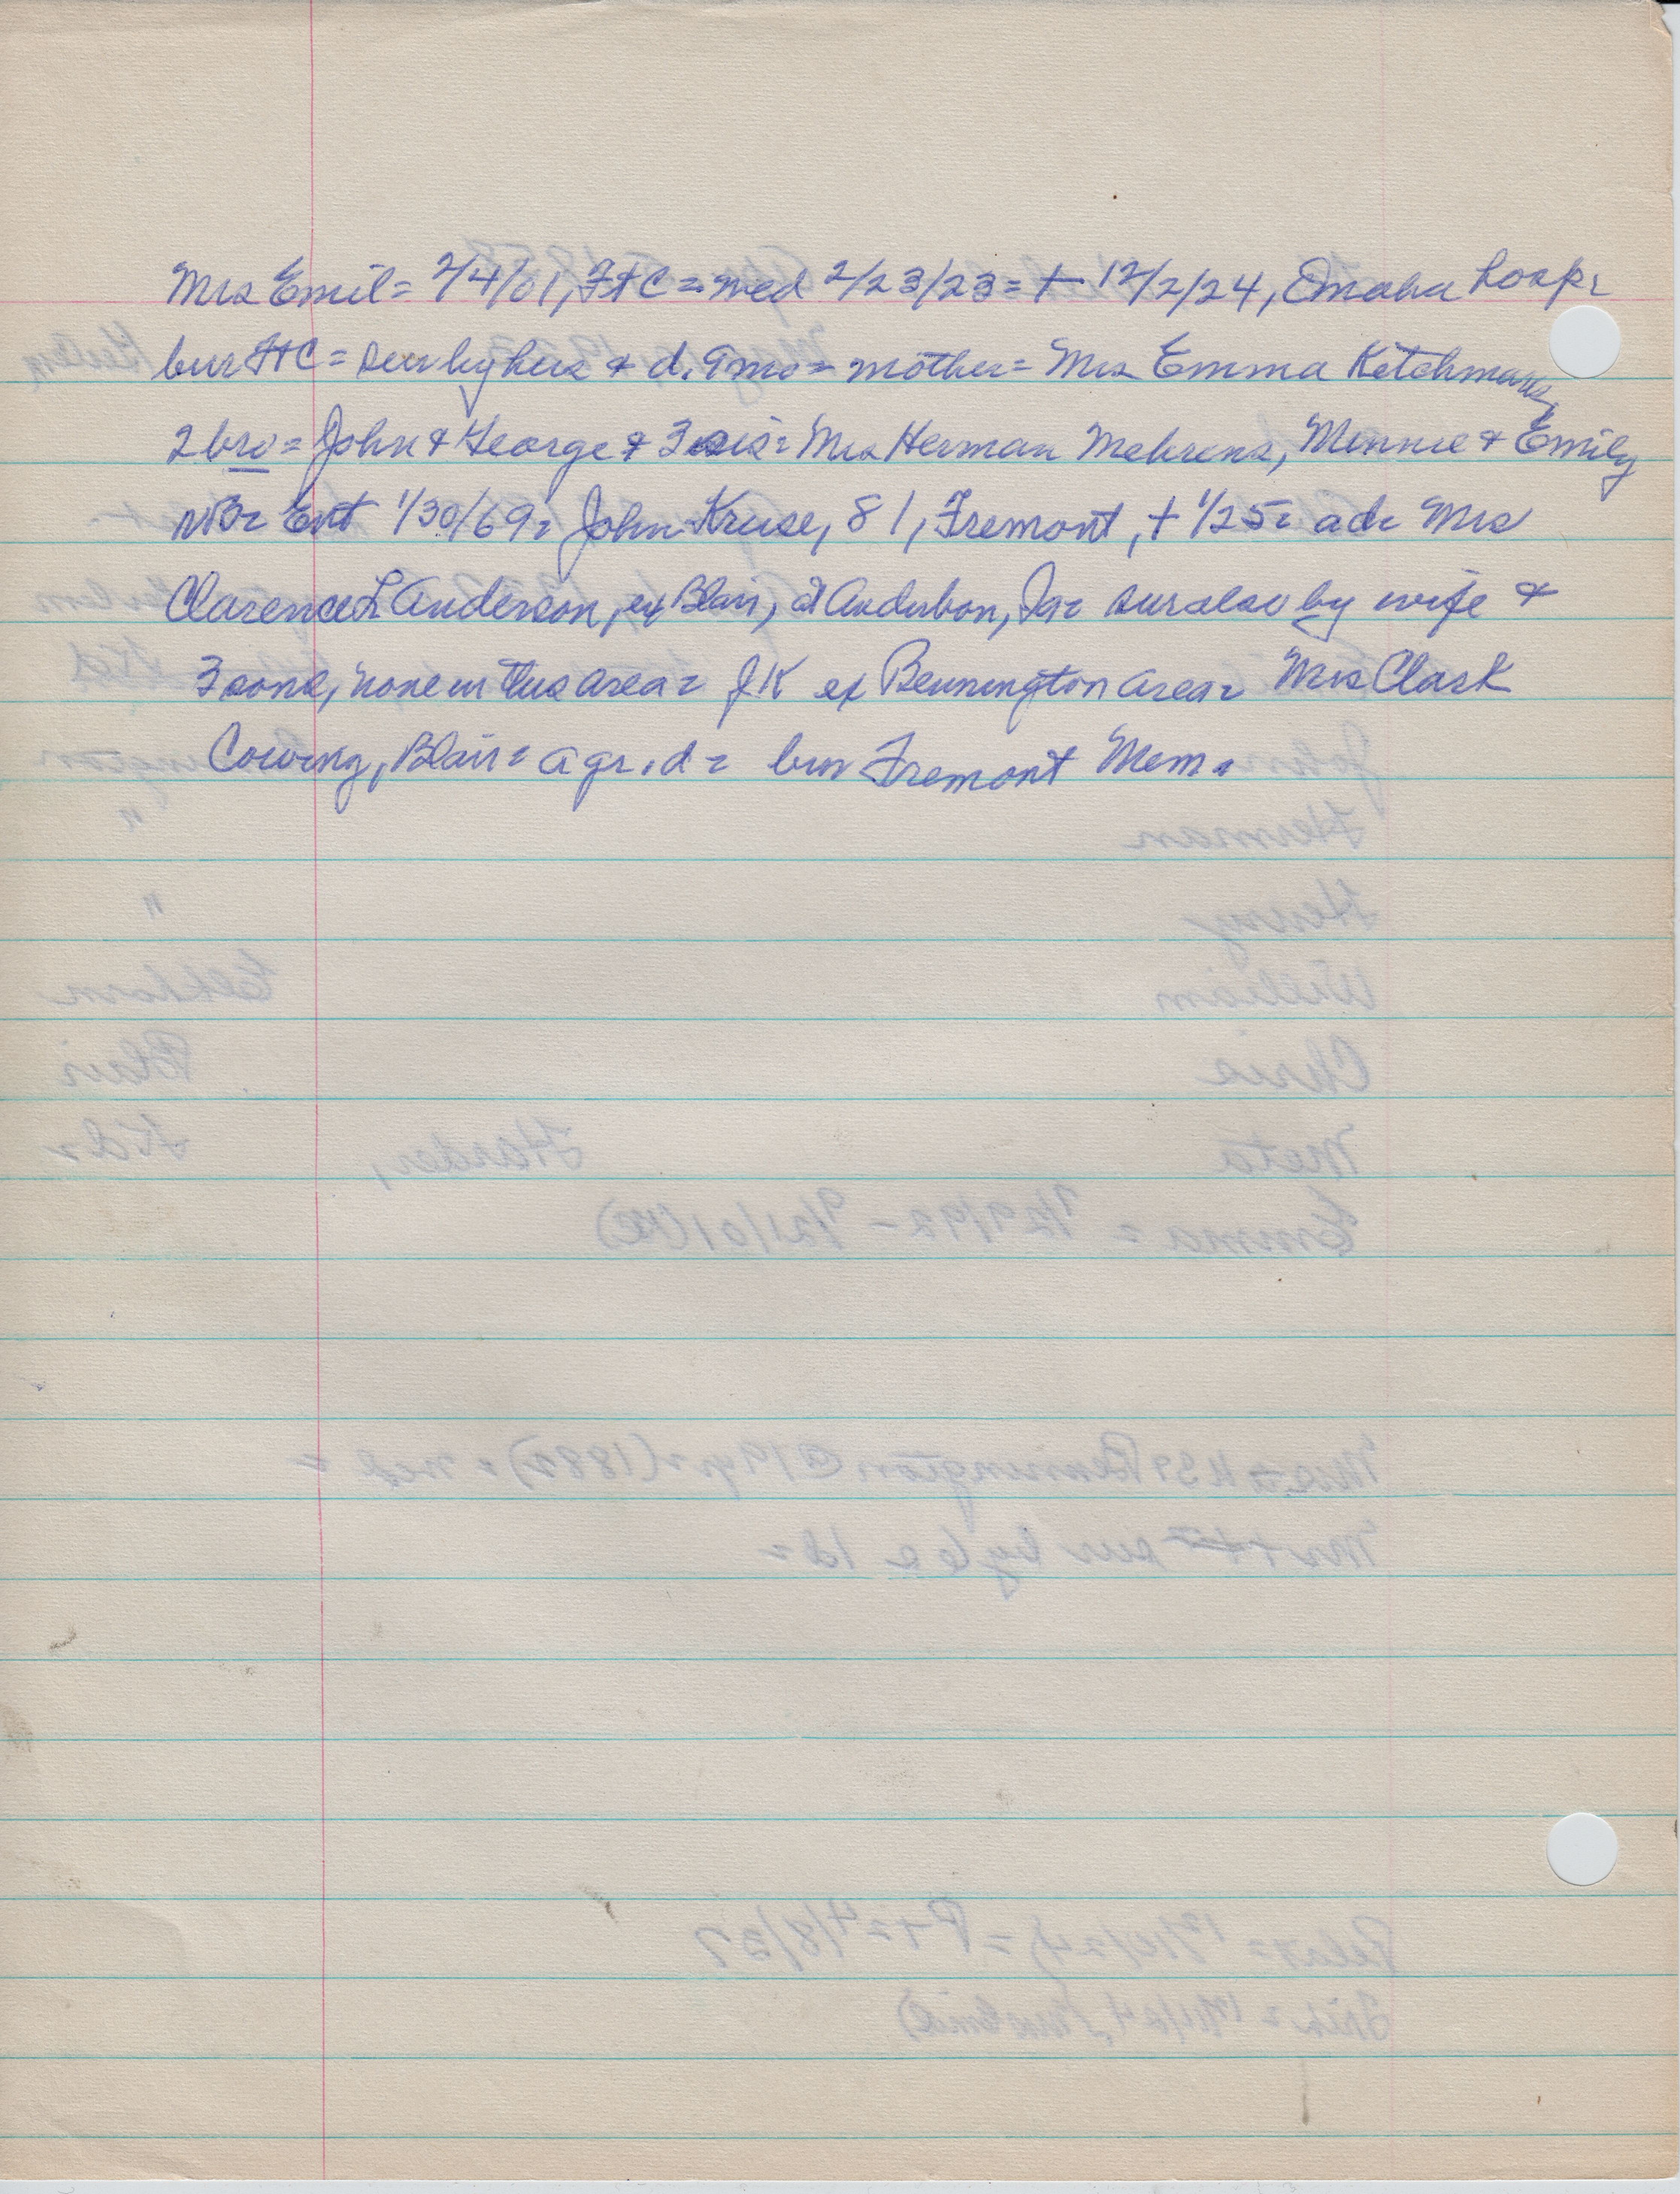 Mrs Emil = 2/4/01, FtC = med 2/23/23 = † 12/2/24, Omaha hosp =
bur FtC = sur by hus & d. 9 mo = mother = Mrs Emma Ketchmark,
2 bro = John & George & 3 sis = Mrs Herman Mehrens, Minnie & Emily
NB = Ent 1/30/69 = John Kruse, 81, Fremont, † 1/25 = a d = Mrs
Clarence L Anderson, ex Blair, at Audubon, Ia = sur also by wife &
3 sons, none in this area = JK ex Bennington area = Mrs Clark
Cowing, Blair = a gr. d = bur Fremont Mem.